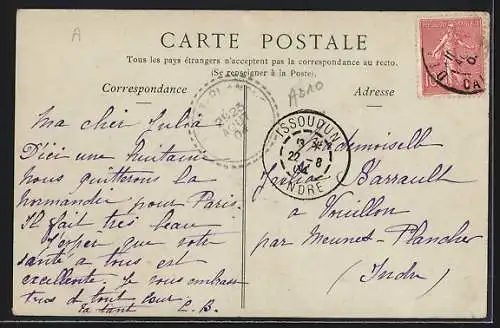 A
CARTE POSTALE
Tous les pays étrangers n'acceptent pas la correspondance au recto.
(Se renseigner à la Poste).
Correspondance
Adresse
A310
ISSOUDUN
22
04
INDRE
Ma cher Julia
D'ici une huitaine
nous quitterons la
normandie pour Paris.
Il fait très beau
J'espère que votre
santé a tous est
excellente. Je vous embrasse
tres d tout cœur
ta tant C. B.
Mademoiselle
Julia Barrault
a Vouillon
par Meunet-Planches
(Indre)